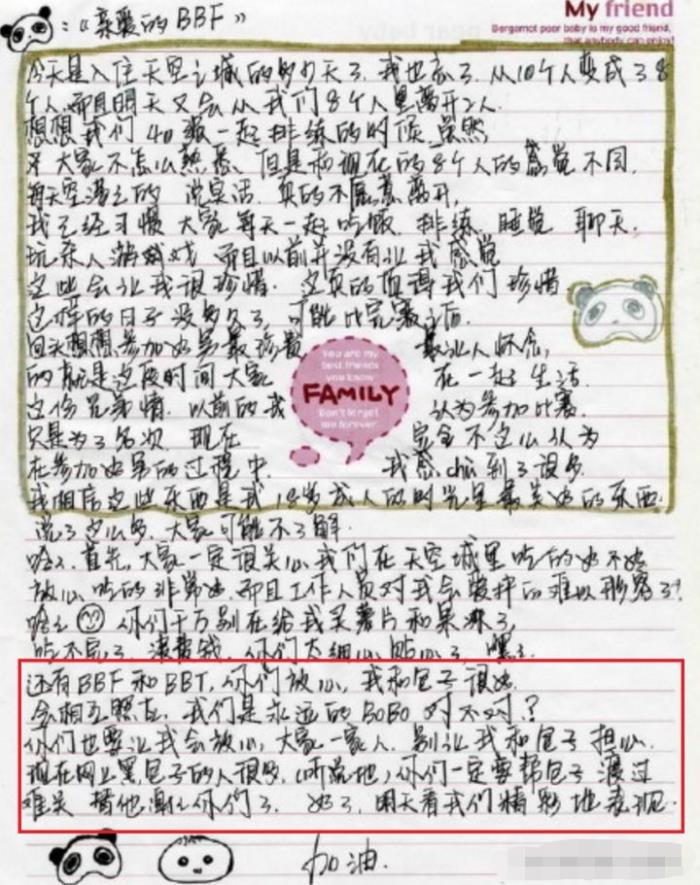 My friend
Bergamot poor baby is my good friend,
that anybody can enjoy!
:《亲爱的BBF》
今天是入住天空之城的多少天了,我也忘了,从10个人变成了8
个人,而且明天又会从我们8个人里离开2人
想想我们40强一起排练的时候,虽然
大家不怎么熟悉,但是和现在的8个人的感觉不同,
每天空荡荡的 说实话,真的不愿意离开,
我已经习惯大家每天一起吃饭、排练、睡觉 聊天,
玩杀人游戏 而且以前并没有让我感觉
这些会让我很珍惜. 这真的值得我们 珍惜
这样的日子没多久了,可能比完赛之后,
回头想想,参加好男最 最让人怀念,
的就是这段时间大家 在一起生活
这份兄弟情. 以前的我 认为参加比赛
只是为了名次 现在 完全不这么认为
在参加好男的过程中, 我感chu到了很多
我相信这些东西是我18岁成人的时光里最美好的东西.
说了这么多,大家可能不了解
哈哈,首先,大家一定很关心我们在天空城里吃的好不好
放心,吃的非常好,而且工作人员对我会
你们千万别在给我买薯片和果冻了,
吃不完了, 浪费钱, 你们太细心,贴心了, 嘿嘿
You are my
best friends
you know
FAMILY
Don't forget
me forever
还有BBF和BBT,你们放心,我和包子很好
会相互照应,我们是永远的BOBO对不对?
你们也要让我会放心,大家一家人,别让我和包子担心.
现在网上黑包子的人很多,(听说地)你们一定要帮包子渡过
难关 替他谢谢你们了. 好了,明天看我们精彩地表现.
加油.